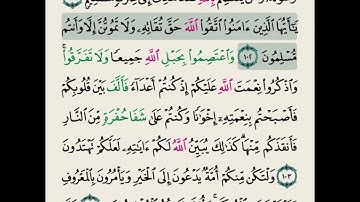 يَٰٓأَيُّهَا ٱلَّذِينَ ءَامَنُوا۟ ٱتَّقُوا۟ ٱللَّهَ حَقَّ تُقَاتِهِۦ وَلَا تَمُوتُنَّ إِلَّا وَأَنتُم
مُّسْلِمُونَ ١٠٢ وَٱعْتَصِمُوا۟ بِحَبْلِ ٱللَّهِ جَمِيعًا وَلَا تَفَرَّقُوا۟ۚ
وَٱذْكُرُوا۟ نِعْمَتَ ٱللَّهِ عَلَيْكُمْ إِذْ كُنتُمْ أَعْدَآءً فَأَلَّفَ بَيْنَ قُلُوبِكُمْ
فَأَصْبَحْتُم بِنِعْمَتِهِۦٓ إِخْوَٰنًا وَكُنتُمْ عَلَىٰ شَفَا حُفْرَةٍ مِّنَ ٱلنَّارِ
فَأَنقَذَكُم مِّنْهَاۗ كَذَٰلِكَ يُبَيِّنُ ٱللَّهُ لَكُمْ ءَايَٰتِهِۦ لَعَلَّكُمْ تَهْتَدُونَ
١٠٣ وَلْتَكُن مِّنكُمْ أُمَّةٌ يَدْعُونَ إِلَى ٱلْخَيْرِ وَيَأْمُرُونَ بِٱلْمَعْرُوفِ